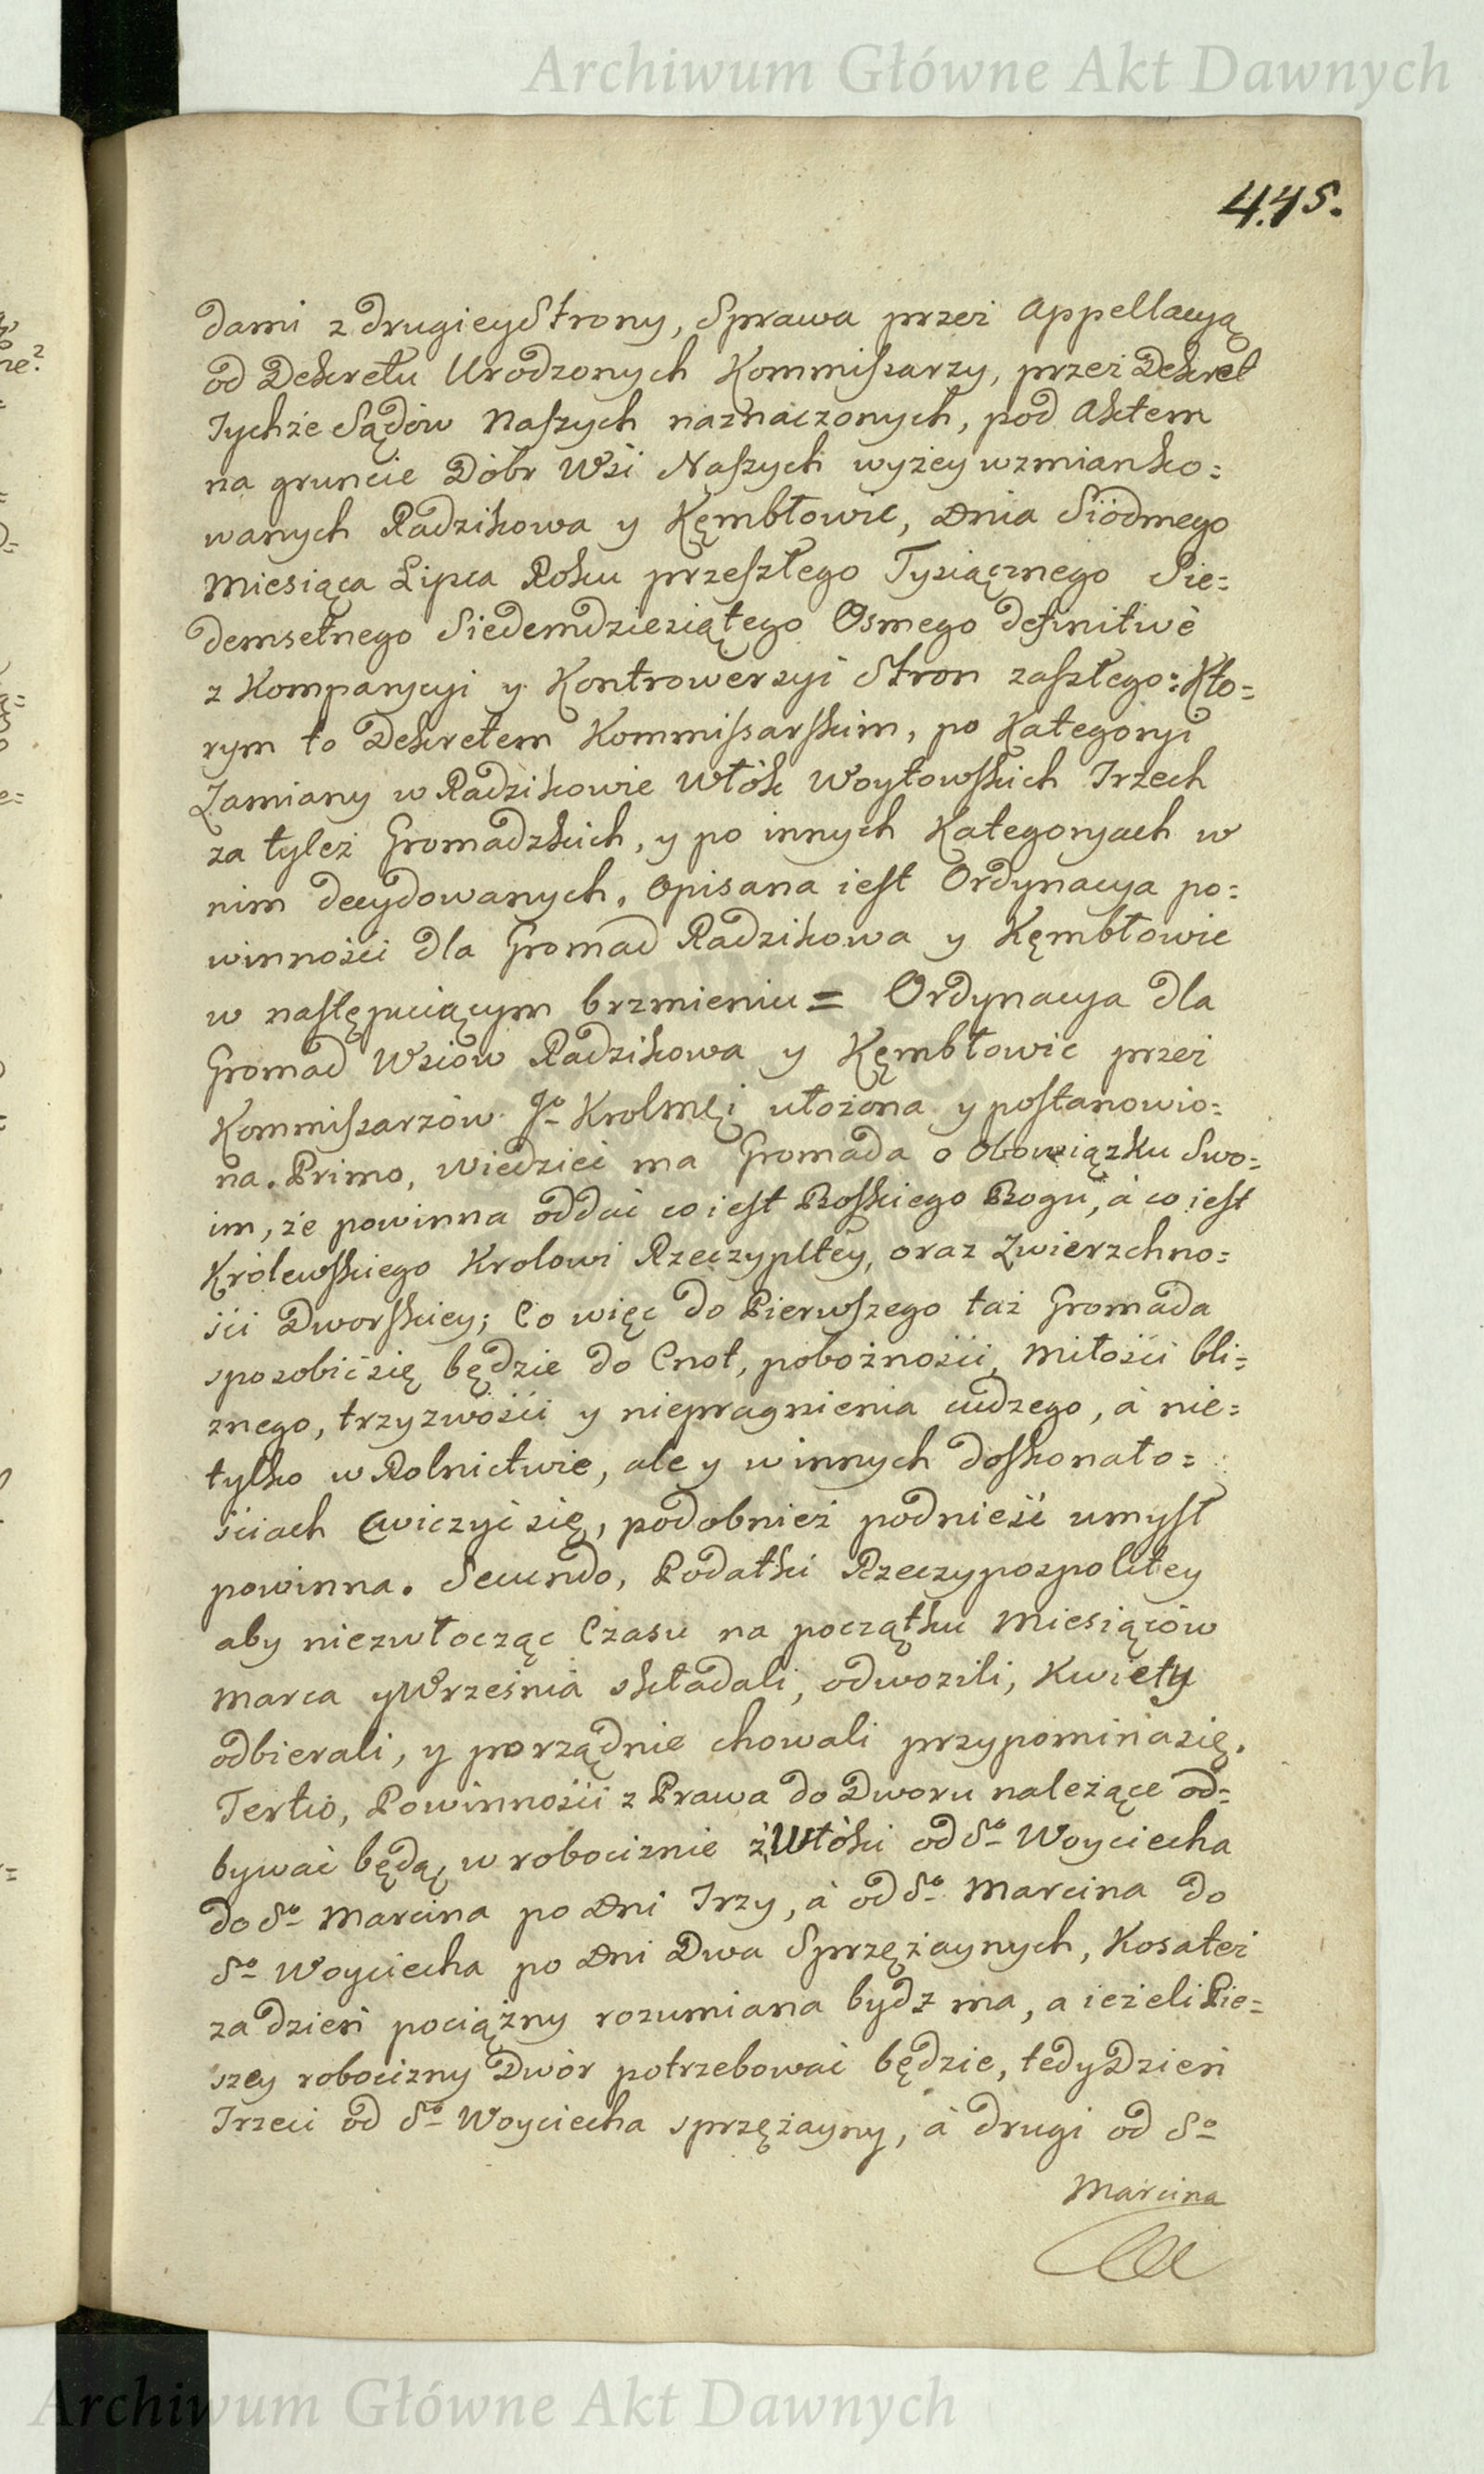 Archiwum Główne Akt Dawnych
445.
dami z drugiey Strony, Sprawa przez Appellacyą
od Dekretu Urodzonych Kommissarzy, przez Dekret
Tychże Sądów Naszych naznaczonych, pod Aktem
na gruncie Dóbr Wsi Naszych wyżey wzmianko=
wanych Radzikowa y Kębłowic, Dnia Siódmego
Miesiąca Lipca Roku przeszłego Tysiącznego Sie=
demsetnego Siedemdziesiątego Osmego definitivè
z Komparycyi y Kontrowersyi Stron zaszłego: Któ=
rym to Dekretem Kommissarskim, po Kategoryi
Zamiany w Radzikowie Włók Woytowskich Trzech
za tyleż Gromadzkich, y po innych Kategoryach w
nim decydowanych, opisana iest Ordynacya po=
winności dla Gromad Radzikowa y Kęmbłowic
w następuiącym brzmieniu = Ordynacya dla
Gromad Wsiów Radzikowa y Kęmbłowic przez
Kommissarzów Jo Krolmci ułożona y postanowio=
na. Primo, wiedzieć ma Gromada o Obowiązku Swo=
im, że powinna oddać co iest Boskiego Bogu, à co iest
Królewskiego Krolowi Rzeczypltey, oraz Zwierzchno=
ści Dworskiey; Co więc do Pierwszego taż Gromada
sposobić się będzie do Cnot, pobożności, Miłości bli=
znego, trzyzwości y niepragnienia cudzego, à nie=
tylko w Rolnictwie, ale y w innych doskonało=
ściach ćwiczyć się, podobnież podnieść umysł
powinna. Secundo, Podatki Rzeczypospolitey
aby niezwłocząc Czasu na początku Miesiąców
Marca y Września składali, odwozili, Kwiety
odbierali, y porządnie chowali przypomina się.
Tertio, Powinności z Prawa do Dworu należące od=
bywać będą, w robociznie z Włóki od So Woyciecha
do So Marcina po Dni Trzy, à od So Marcina do
So Woyciecha po Dni Dwa Sprzężaynych, Kosa też
za dzień pociążny rozumiana bydz ma, a ieżeli Pie=
szey robocizny Dwór potrzebować będzie, tedy Dzień
Trzeci od So Woyciecha sprzężayny, à drugi od So
Marcina
Archiwum Główne Akt Dawnych